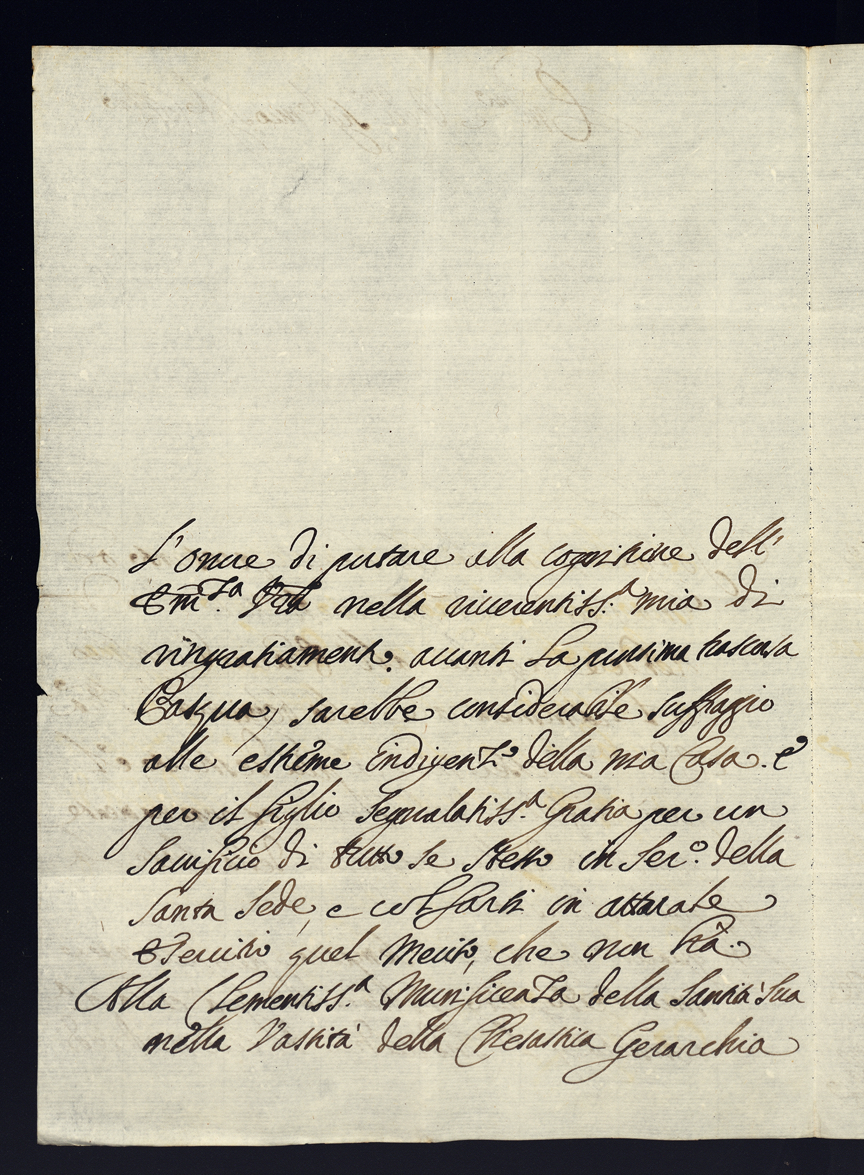 L'onore di portare alla cognitione dell'
Em.za Vra nella riverentiss.a mia di
ringratiamento, avanti La prossima trascorsa
Pasqua, sarebbe considerabile suffragio
alle estreme Indigenze della mia Casa. e
per il figlio segnalatiss.a Gratia per un
Sacrificio di tutto se stesso in Ser.o della
Santa Sede, e col farsi in attuale
Servitio quel Merito, che non hà.
Alla Clementiss.a Munificenza della Santità Sua
nella Vastità della Chiesastica Gerarchia